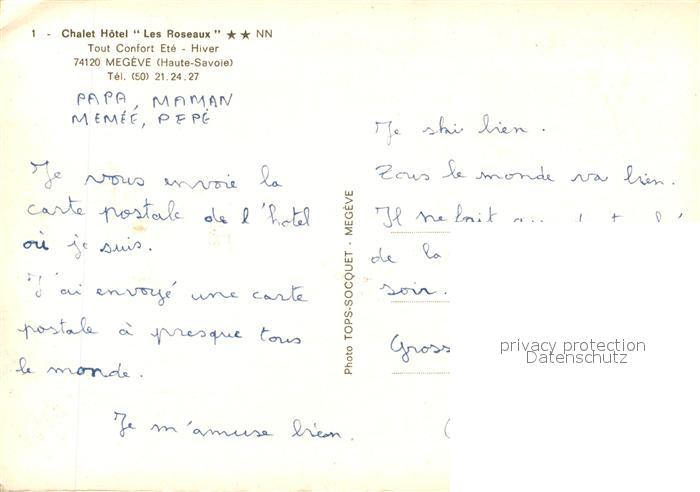 1 - Chalet Hôtel " Les Roseaux " ★★ NN
Tout Confort Eté - Hiver
74120 MEGÈVE (Haute-Savoie)
Tél. (50) 21.24.27
PAPA, MAMAN
MEMÉE, PEPÉ
Je vous envoie la
carte postale de l'hotel
où je suis.
J'ai envoyé une carte
postale à presque tous
le monde.
Je m'amuse bien.
Photo TOPS-SOCQUET - MEGÈVE
Je ski bien.
Tous le monde va bien.
Il ne
de la
soir.
Gross
privacy protection
Datenschutz